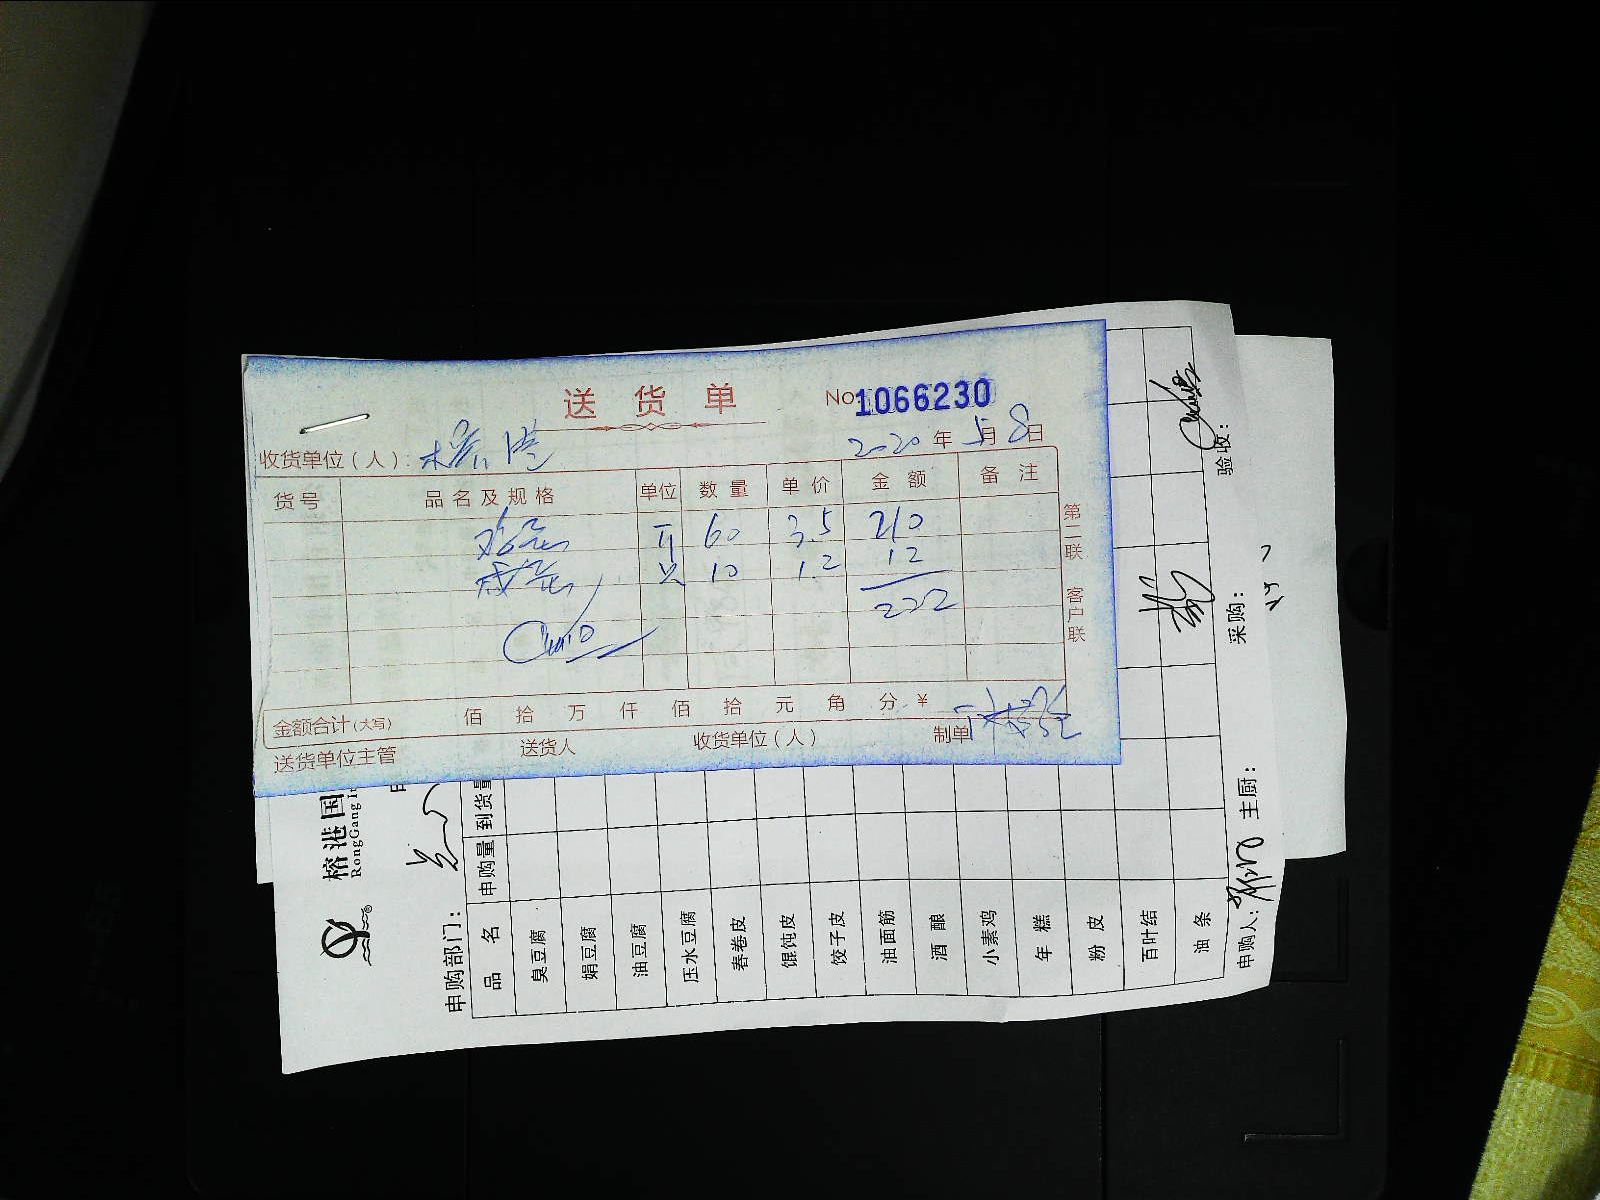 送货单
No 1066230
2020年5月8日
收货单位(人): 榕港
货号 品名及规格 单位 数量 单价 金额 备注
鸡蛋 斤 60 3.5 210
咸蛋 只 10 1.2 12
222
金额合计(大写) 佰 拾 万 仟 佰 拾 元 角 分 ¥
送货单位主管 送货人 收货单位(人) 制单
第二联 客户联
榕港国
RongGang
申购部门:
品名 申购量 到货量
臭豆腐
娟豆腐
油豆腐
压水豆腐
春卷皮
馄饨皮
饺子皮
油面筋
酒酿
小素鸡
年糕
粉皮
百叶结
油条
申购人: 主厨: 采购: 验收: